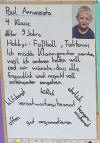 Paul Annunziata
4. Klasse
Alter: 9 Jahre
Hobbys: Fußball, Tischtennis
Ich möchte Klassensprecher werden,
weil ich anderen helfen will
und mir wünsche, dass alle
freundlich und respektvoll
miteinander umgehen.
hilfsbereit
höflich
ehrlich
verantwortungsbewusst
offen
gut organisiert